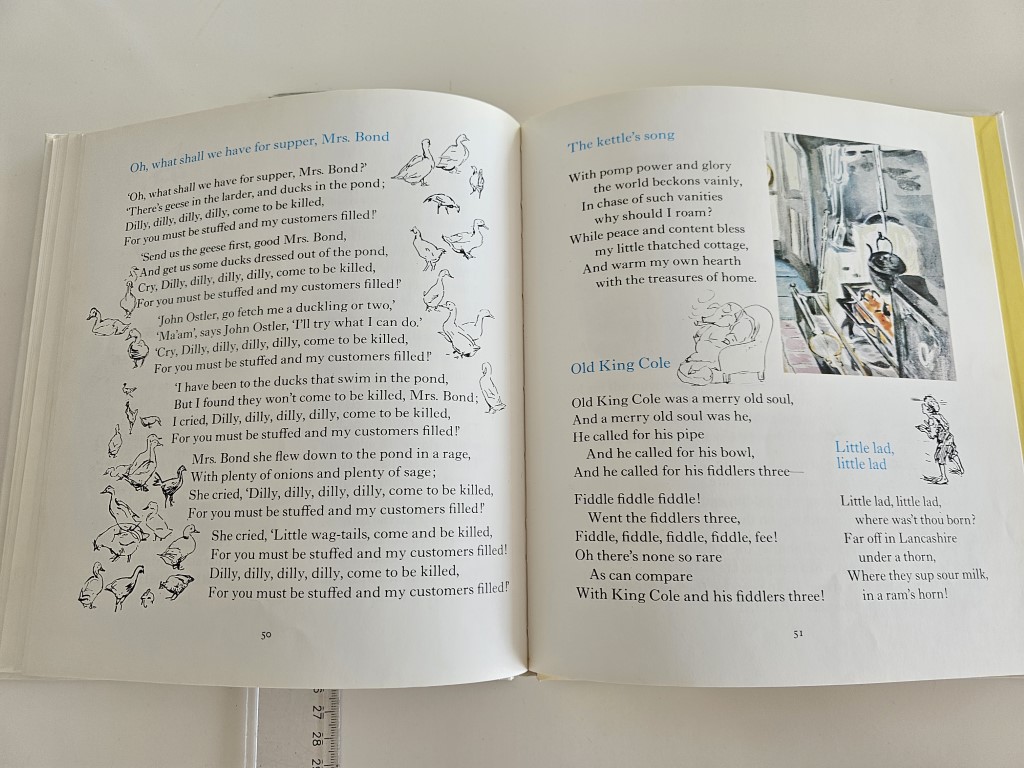 Oh, what shall we have for supper, Mrs. Bond
'Oh, what shall we have for supper, Mrs. Bond?'
'There's geese in the larder, and ducks in the pond;
Dilly, dilly, dilly, dilly, come to be killed,
For you must be stuffed and my customers filled!'
'Send us the geese first, good Mrs. Bond,
And get us some ducks dressed out of the pond,
Cry, Dilly, dilly, dilly, dilly, come to be killed,
For you must be stuffed and my customers filled!'
'John Ostler, go fetch me a duckling or two,'
'Ma'am', says John Ostler, 'I'll try what I can do.'
'Cry, Dilly, dilly, dilly, dilly, come to be killed,
For you must be stuffed and my customers filled!'
'I have been to the ducks that swim in the pond,
But I found they won't come to be killed, Mrs. Bond;
I cried, Dilly, dilly, dilly, dilly, come to be killed,
For you must be stuffed and my customers filled!'
Mrs. Bond she flew down to the pond in a rage,
With plenty of onions and plenty of sage;
She cried, 'Dilly, dilly, dilly, dilly, come to be killed,
For you must be stuffed and my customers filled!'
She cried, 'Little wag-tails, come and be killed,
For you must be stuffed and my customers filled!
Dilly, dilly, dilly, dilly, come to be killed,
For you must be stuffed and my customers filled!'
50
The kettle's song
With pomp power and glory
the world beckons vainly,
In chase of such vanities
why should I roam?
While peace and content bless
my little thatched cottage,
And warm my own hearth
with the treasures of home.
Old King Cole
Old King Cole was a merry old soul,
And a merry old soul was he,
He called for his pipe
And he called for his bowl,
And he called for his fiddlers three—
Fiddle fiddle fiddle!
Went the fiddlers three,
Fiddle, fiddle, fiddle, fiddle, fee!
Oh there's none so rare
As can compare
With King Cole and his fiddlers three!
Little lad,
little lad
Little lad, little lad,
where was't thou born?
Far off in Lancashire
under a thorn,
Where they sup sour milk,
in a ram's horn!
51
27
28